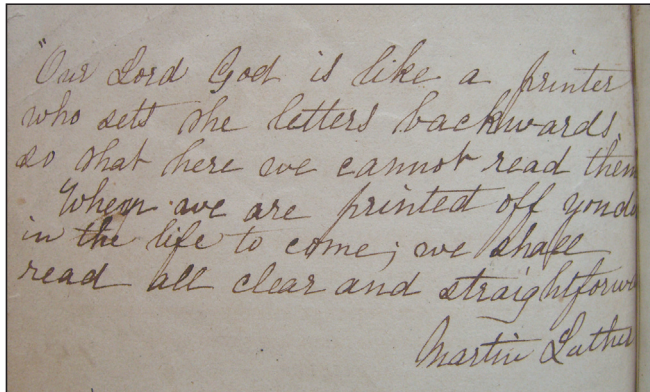 "Our Lord God is like a printer
who sets the letters backwards,
so that here we cannot read them
When we are printed off yonde
in the life to come; we shall
read all clear and straightforwa
Martin Luther